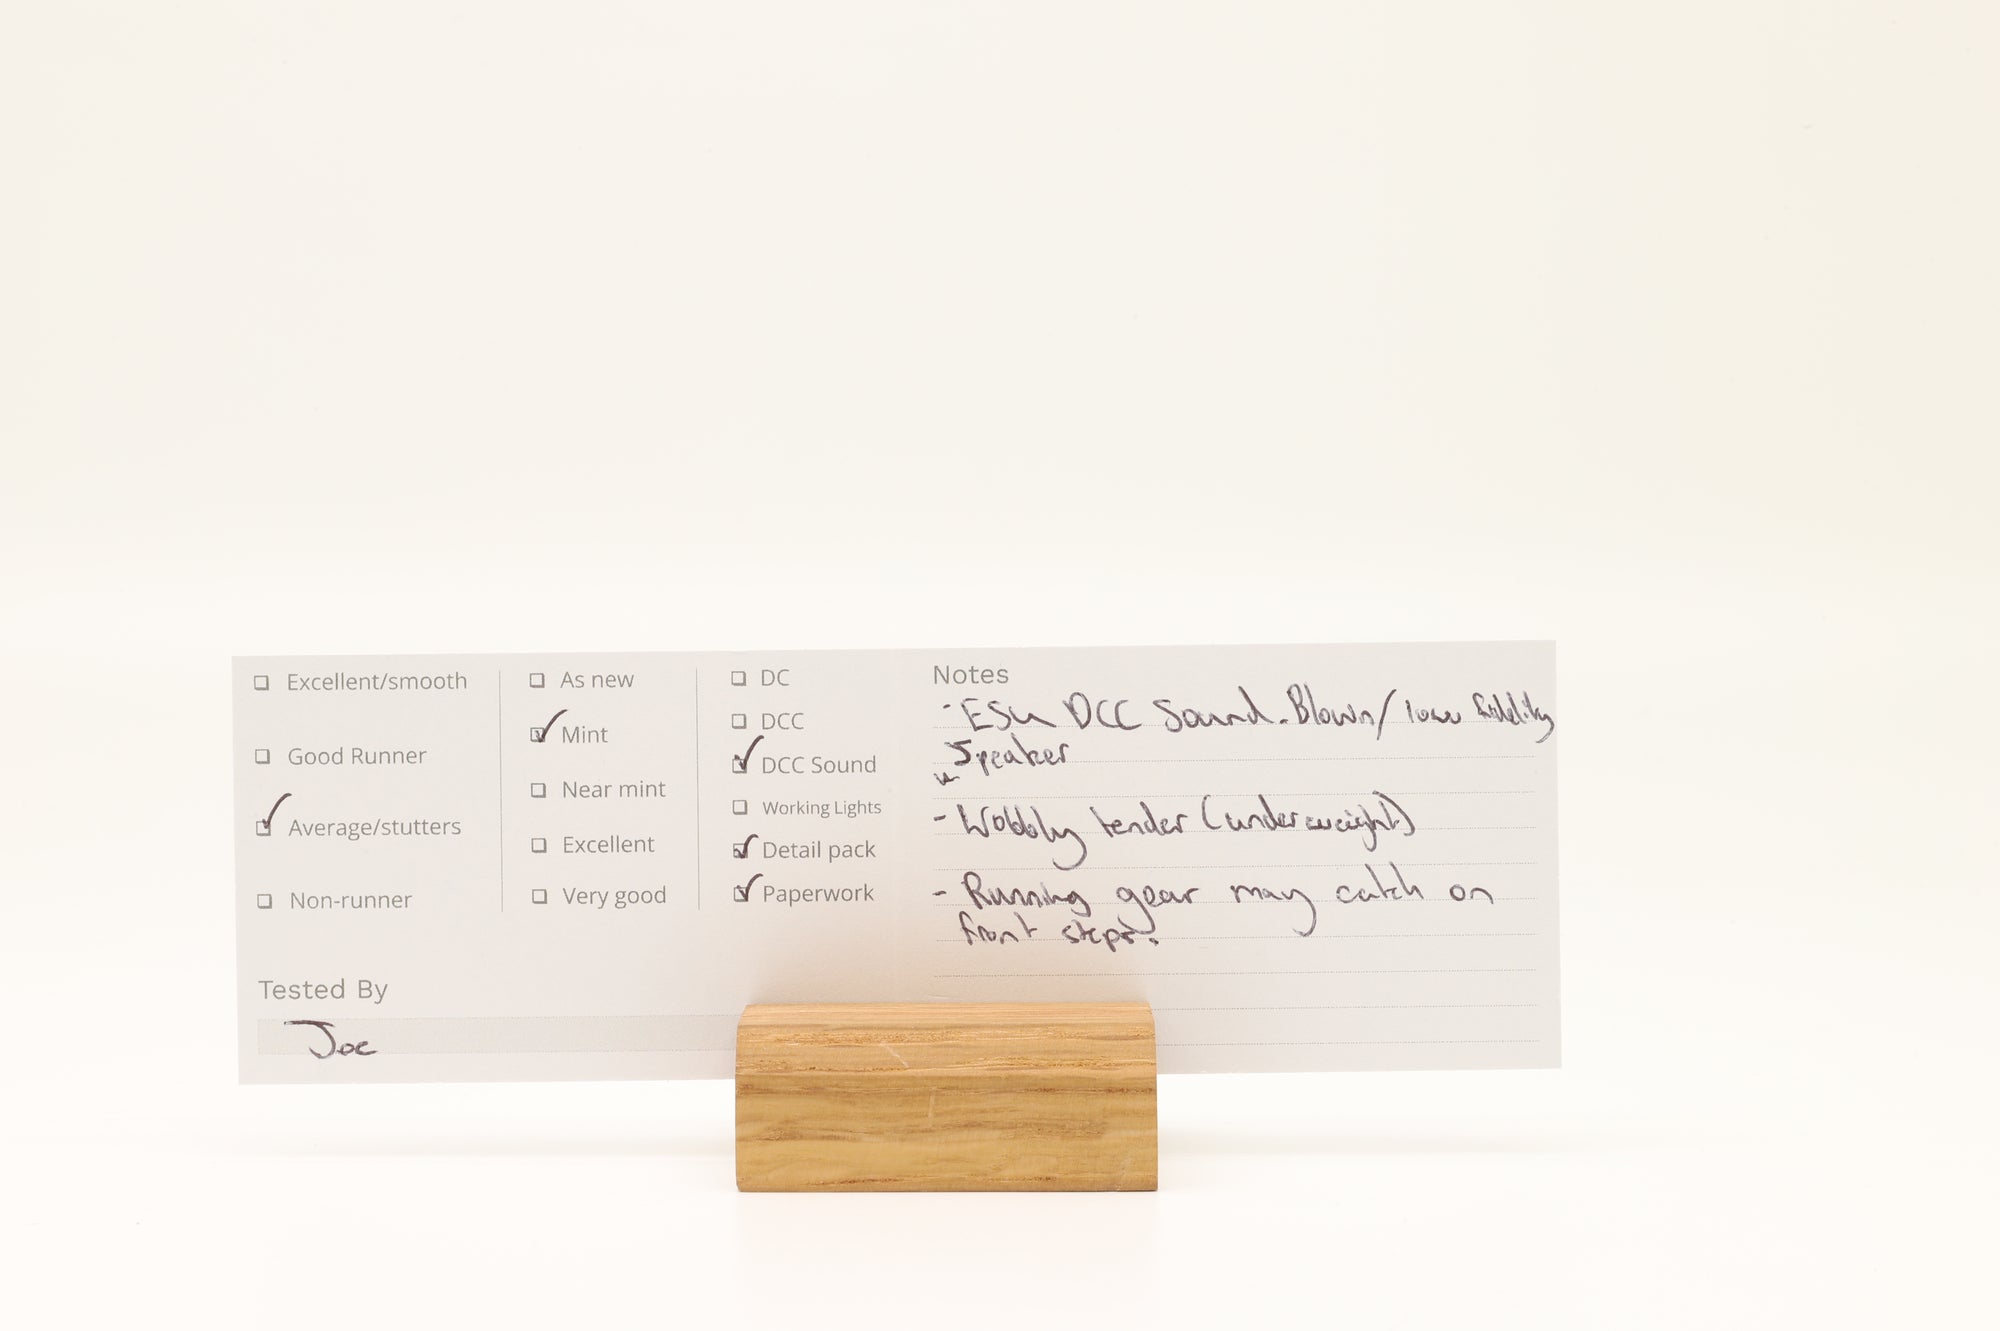 Excellent/smooth
Good Runner
Average/stutters
Non-runner
As new
Mint
Near mint
Excellent
Very good
DC
DCC
DCC Sound
Working Lights
Detail pack
Paperwork
Tested By
Joe
Notes
- ESU DCC Sound. Blown/low fidelity
Speaker
- Wobbly tender (underweight)
- Running gear may catch on
front steps.